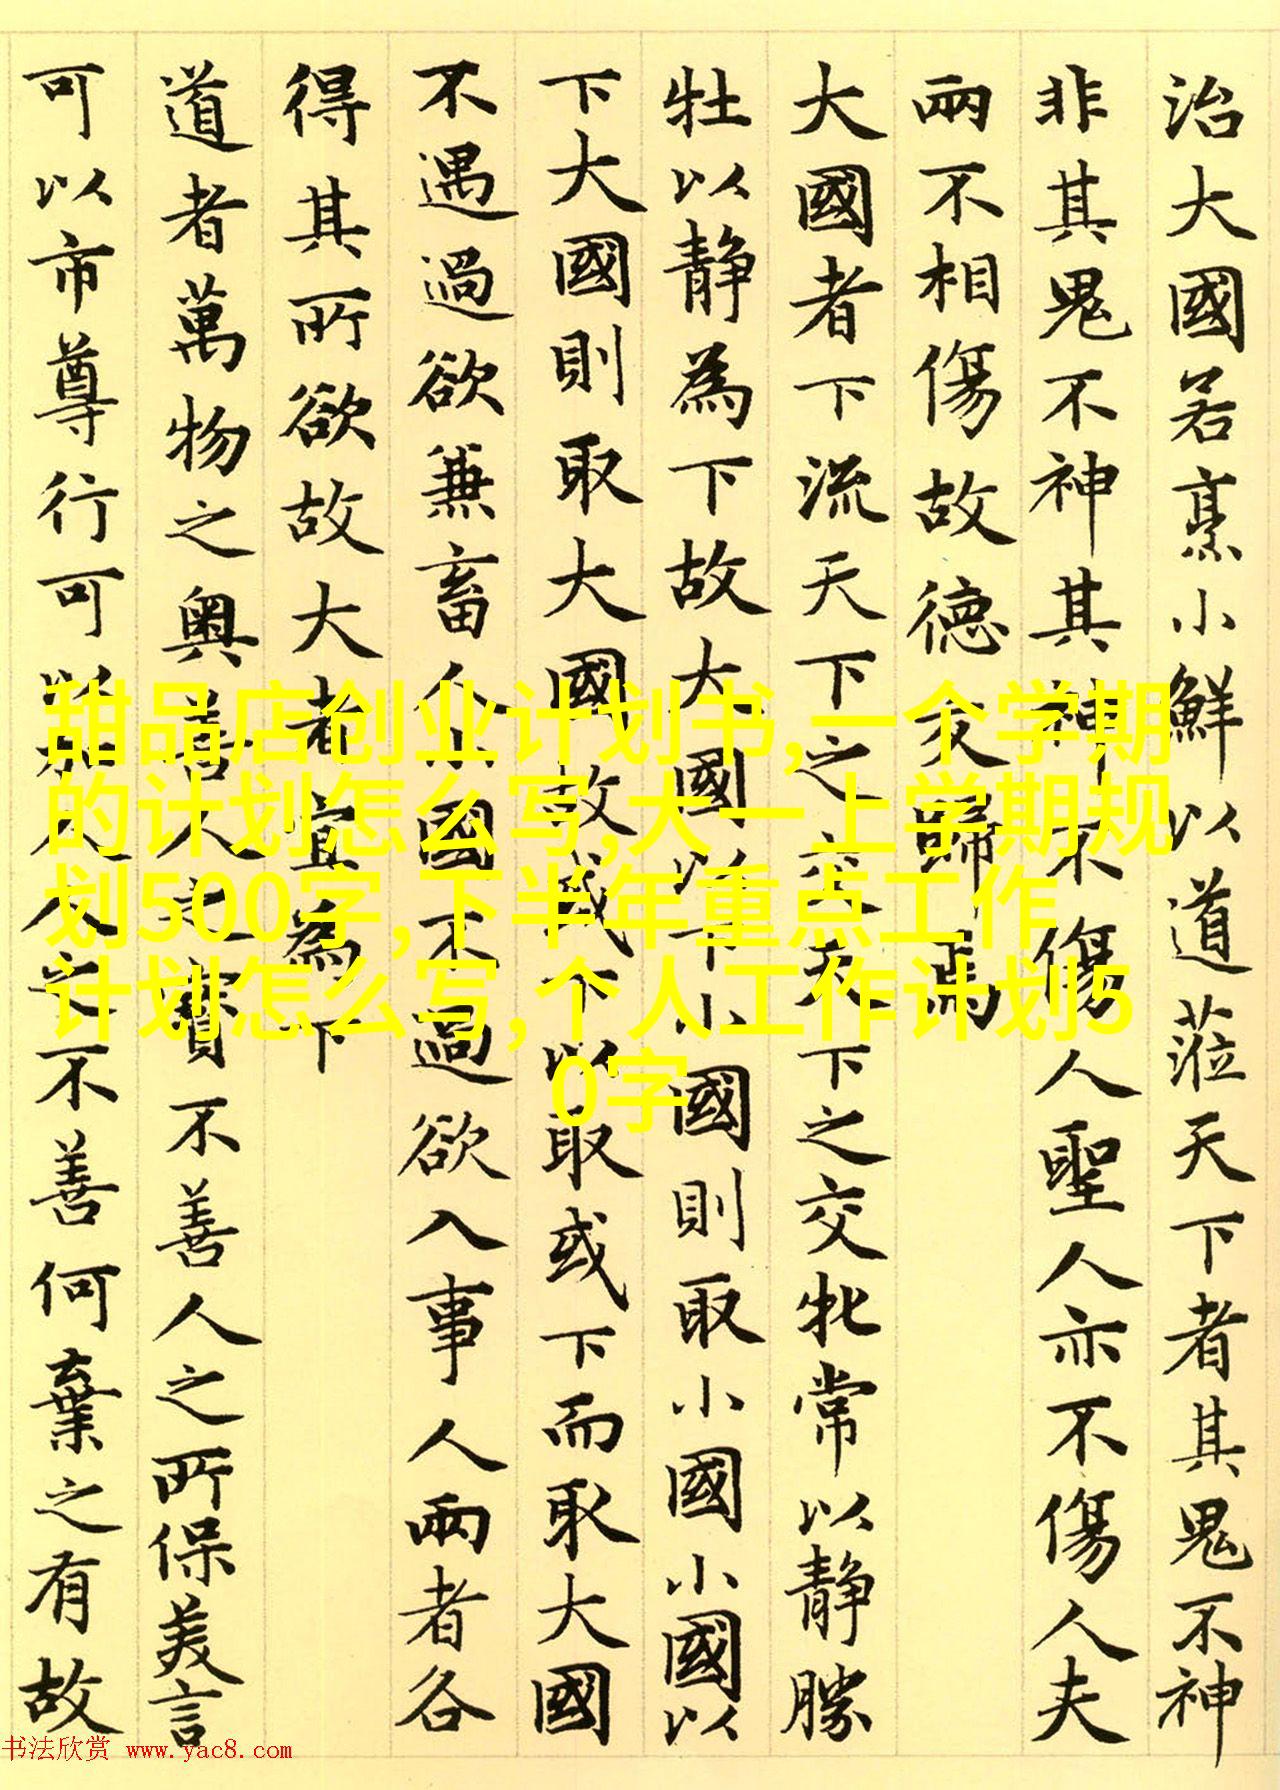 治大國若烹小鮮以道蒞天下者其鬼不神
非其鬼不神其神不傷人聖人亦不傷人夫
兩不相傷故德交歸焉
大國者下流天下之交天下之交牝常以静勝
牡以静為下故大國以下小國則取小國小國以
下大國則取大國故或下以取或下而取大國
不遇過欲兼畜人小國不過欲入事人兩者各
得其所欲故大者宜為下
道者萬物之奧善人之寶不善人之所保美言
可以市尊行可以加人人之不善何棄之有故
甜品店创业计划书,一个学期
的计划怎么写,大一上学期规
划500字,下半年重点工作
计划怎么写,个人工作计划5
0字
书法欣赏 www.yac8.com